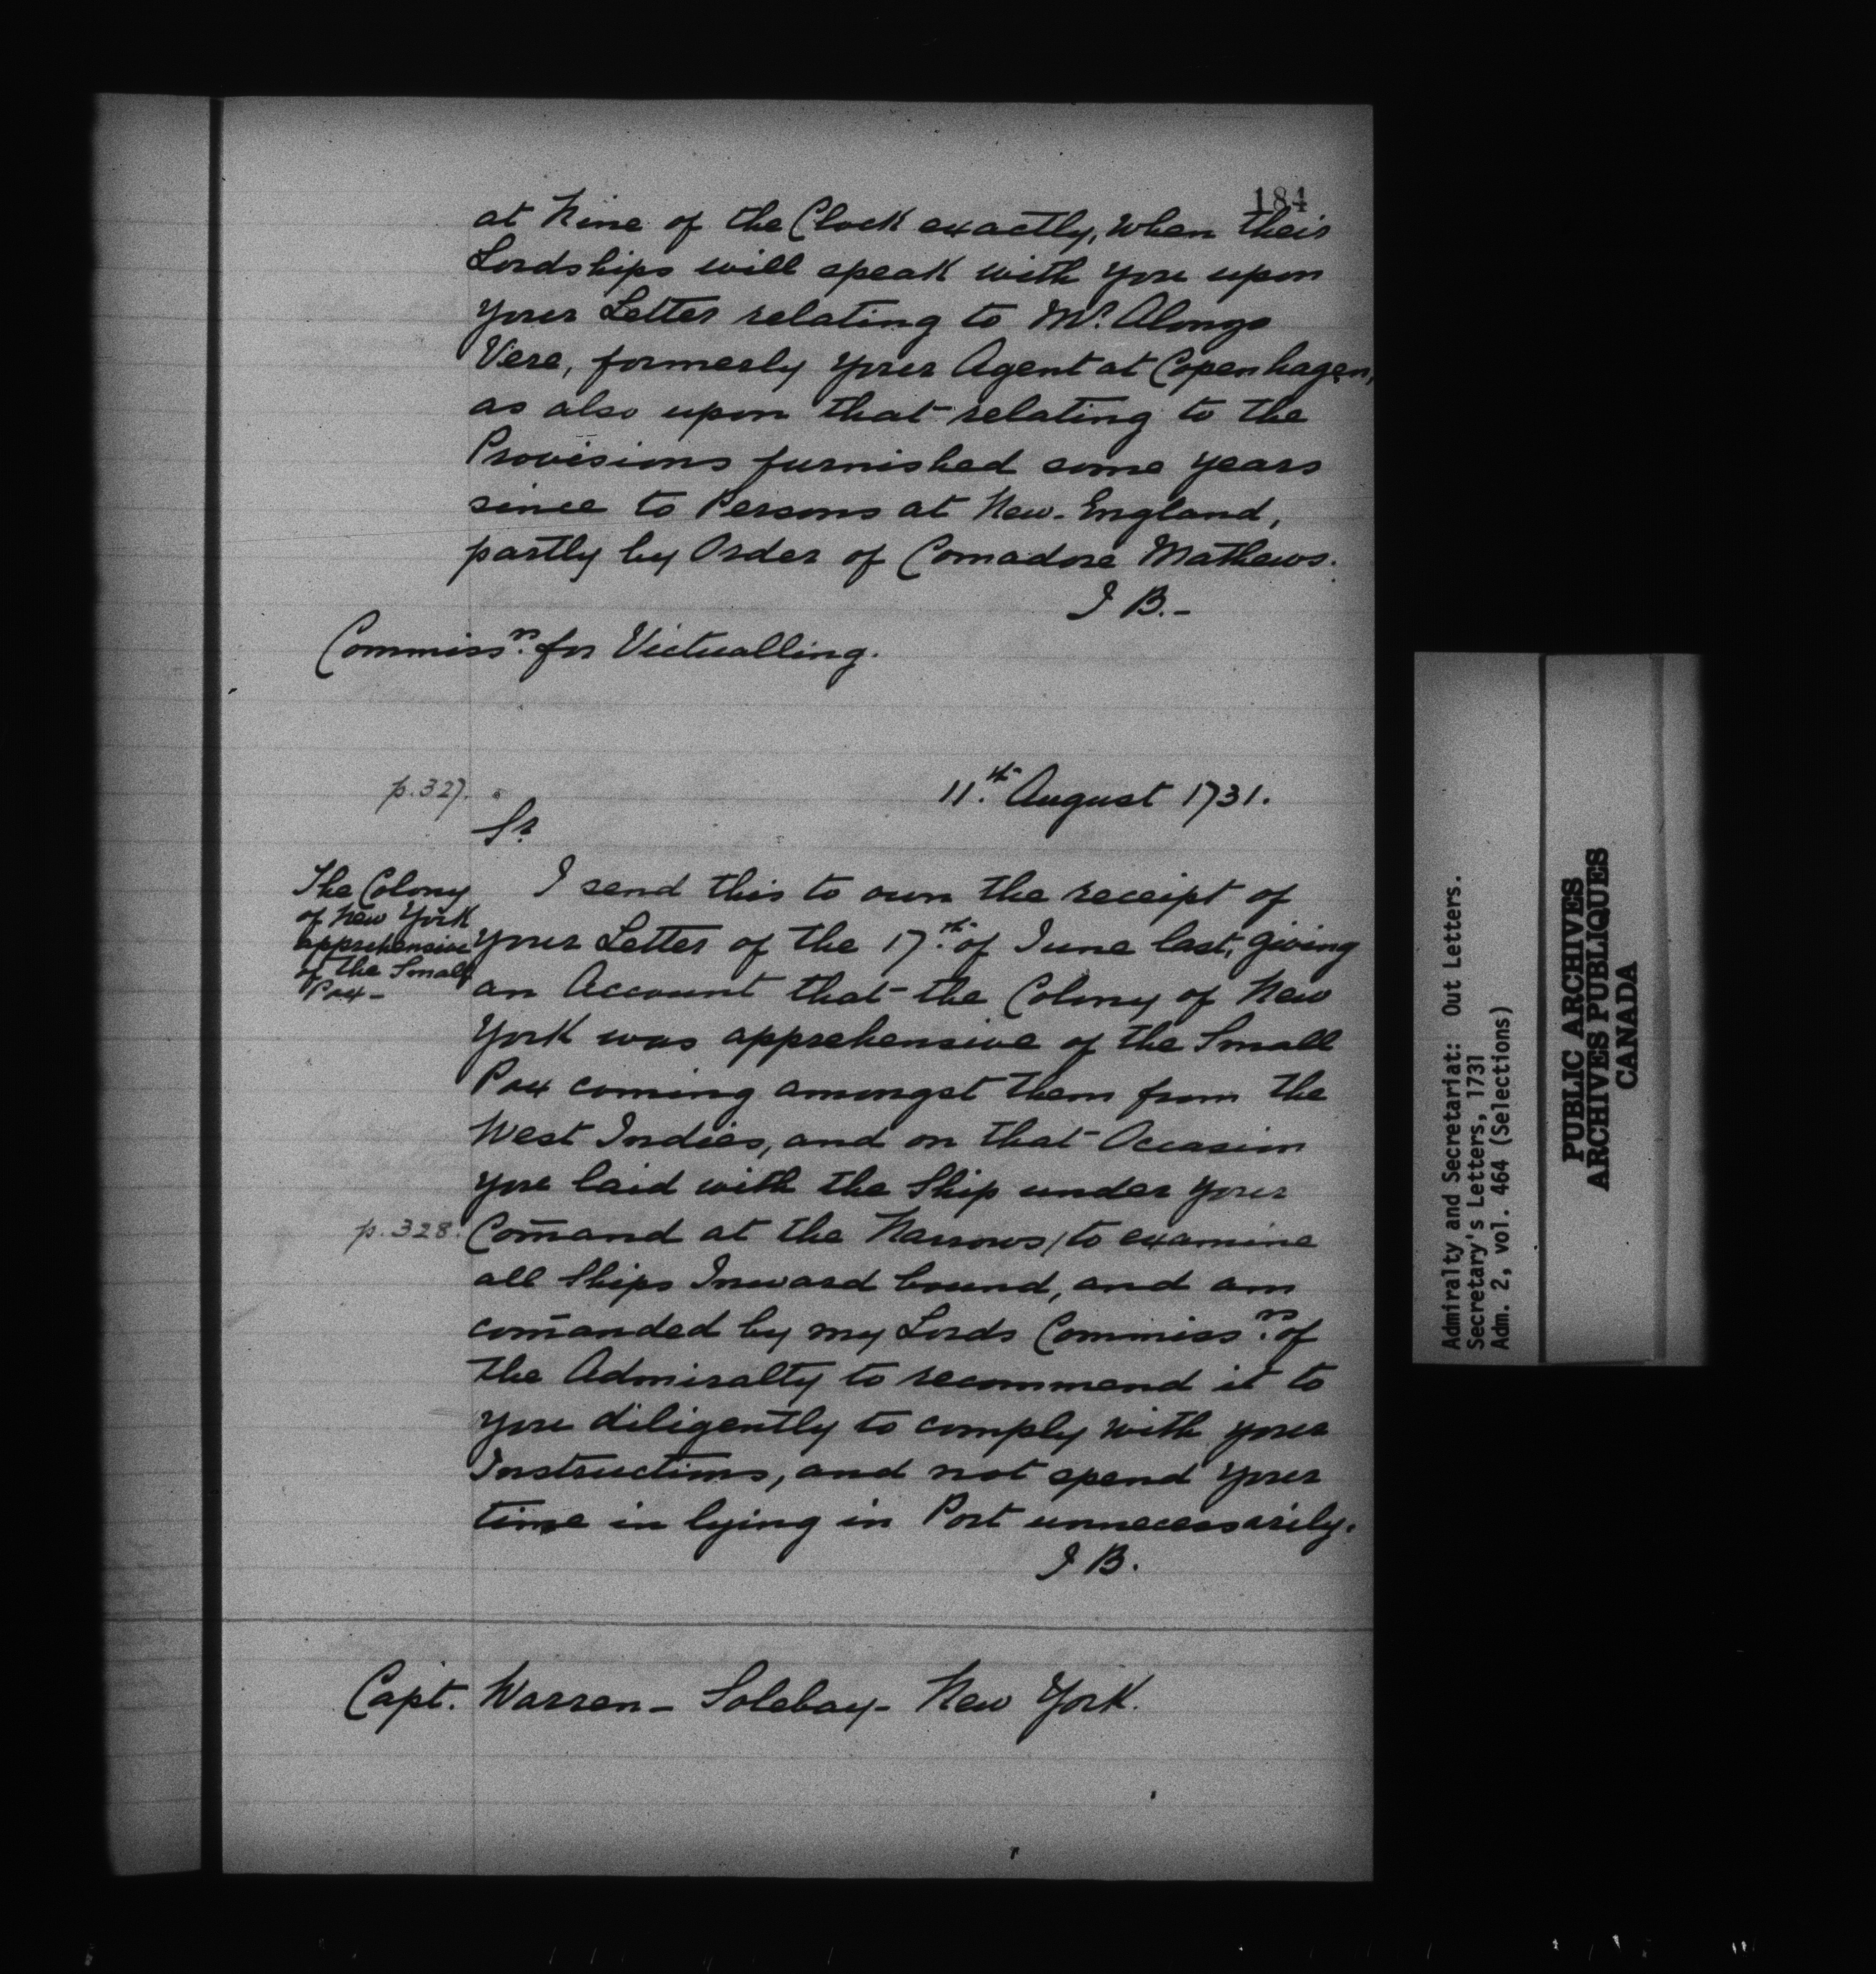 184
at Nine of the Clock exactly, when their
Lordships will speak with you upon
your Letter relating to Mr. Alonzo
Vere, formerly your Agent at Copenhagen,
as also upon that relating to the
Provisions furnished some years
since to Persons at New-England,
partly by Order of Comadore Mathews.
J B.-
Commissrs. for Victualling.
p.327.
11.th August 1731.
Sr.
The Colony
of New York
apprehensive
of the Small
Pox-
I send this to own the receipt of
your Letter of the 17.th of June last, giving
an Account that the Colony of New
York was apprehensive of the Small
Pox coming amongst them from the
West Indies, and on that Occasion
you laid with the Ship under your
p.328.
Com̄and at the Narrows/to examine
all Ships Inward bound, and am
com̄anded by my Lords Commissrs. of
the Admiralty to recommend it to
you diligently to comply with your
Instructions, and not spend your
time in lying in Port unnecessarily.
J B.
Capt. Warren- Solebay- New York.
Admiralty and Secretariat: Out Letters.
Secretary's Letters, 1731
Adm. 2, vol. 464 (Selections)
PUBLIC ARCHIVES
ARCHIVES PUBLIQUES
CANADA